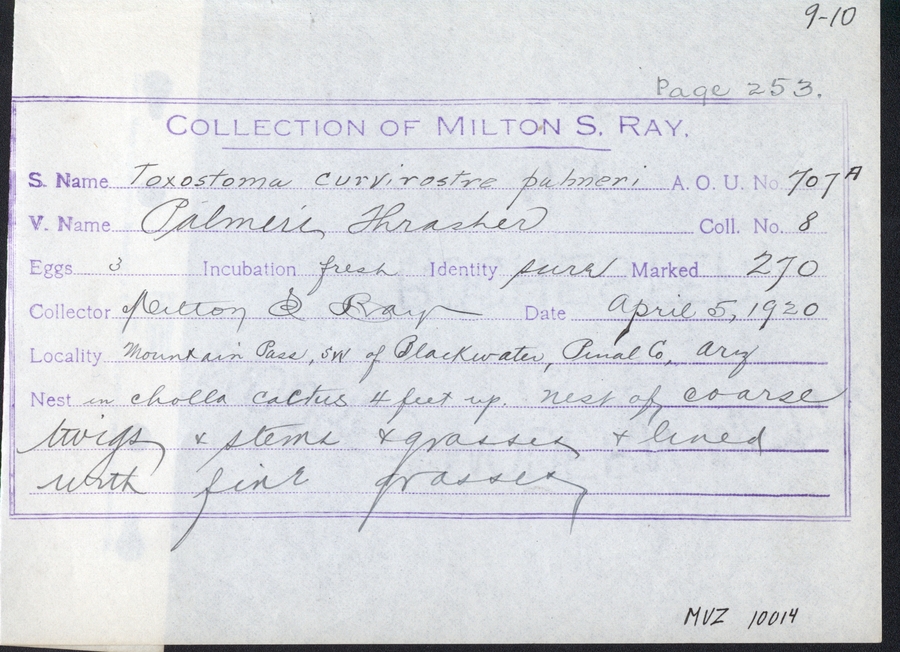 9-10
Page 253.
COLLECTION OF MILTON S. RAY.
S. Name Toxostoma curvirostre palmeri A. O. U. No. 707A
V. Name Palmeri Thrasher Coll. No. 8
Eggs 3 Incubation fresh Identity sure Marked 270
Collector Milton S Ray Date April 5, 1920
Locality Mountain Pass, SW of Blackwater, Pinal Co, Ariz
Nest in cholla cactus 4 feet up. nest of coarse
twigs & stems & grasses & lined
with fine grasses
MVZ 10014